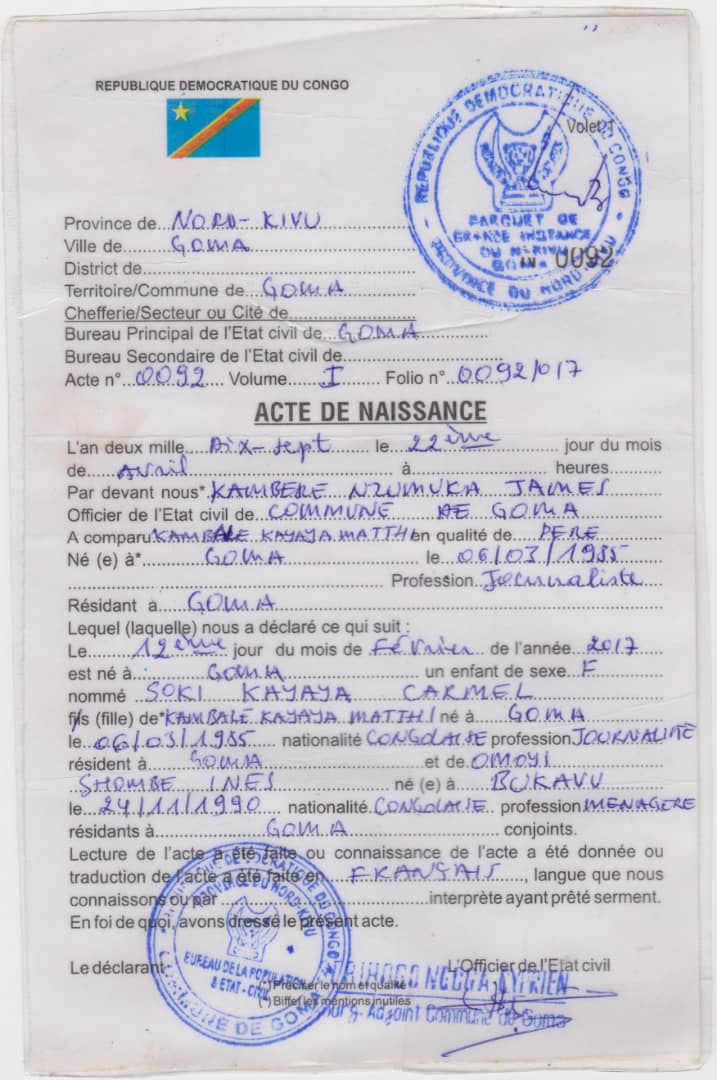 REPUBLIQUE DEMOCRATIQUE DU CONGO
REPUBLIQUE DEMOCRATIQUE DU CONGO
Volet 1
PARQUET DE
GRANDE INSTANCE
GOMA
PROVINCE DU NORD
0092
Province de NORD-KIVU
Ville de GOMA
District de
Territoire/Commune de GOMA
Chefferie/Secteur ou Cité de
Bureau Principal de l'Etat civil de GOMA
Bureau Secondaire de l'Etat civil de
Acte n° 0092 Volume I Folio n° 0092/017
ACTE DE NAISSANCE
L'an deux mille Dix-sept le 22ème jour du mois
de Avril à heures
Par devant nous* KAMBERE NZUMUKA JAMES
Officier de l'Etat civil de COMMUNE DE GOMA
A comparu KAMBALE KAYAYA MATTHI en qualité de PERE
Né (e) à* GOMA le 06/03/1985
Profession Journaliste
Résidant à GOMA
Lequel (laquelle) nous a déclaré ce qui suit :
Le 12ème jour du mois de Février de l'année 2017
est né à GOMA un enfant de sexe F
nommé SOKI KAYAYA CARMEL
fils (fille) de* KAMBALE KAYAYA MATTHI né à GOMA
le 06/03/1985 nationalité CONGOLAISE profession JOURNALITE
résident à GOMA et de OMOYI
SHOMBE INES né (e) à BUKAVU
le 24/11/1990 nationalité CONGOLAISE profession MENAGERE
résidants à GOMA conjoints.
Lecture de l'acte a été faite ou connaissance de l'acte a été donnée ou
traduction de l'acte a été faite en FRANÇAIS, langue que nous
connaissons ou par interprète ayant prêté serment.
En foi de quoi, avons dressé le présent acte.
Le déclarant
L'Officier de l'Etat civil
DEMOCRATIQUE DU CONGO
PROVINCE DU NORD-KIVU
BUREAU DE LA POPULATION
& ETAT-CIVIL
COMMUNE DE GOMA
(*) Préciser le nom et qualité
(*) Biffer les mentions inutiles
NGOGA CYPRIEN
Bourg. Adjoint Commune de Goma